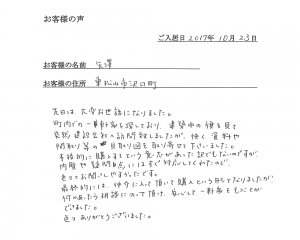 お客様の声
ご入居日 2017年 10月 23日
お客様の名前 矢澤
お客様の住所 東松山市沢口町
先日は、大変お世話になりました。
町内での一軒家を探しており、建築中の様子を見て
突然建設会社へ訪問致しましたが、快く資料や
間取り等の見取り図を取り寄せて下さいました。
本格的に購入するという覚悟があった訳でもないのですが
内覧や疑問点にはすぐ対応してくれたので、
色々とお伺いしやすかったです。
最終的には、仲介に入って頂いて購入という形となりましたが
何かあったら相談にのって頂け、安心して一軒家をもつことが
できました。
色々ありがとうございました。